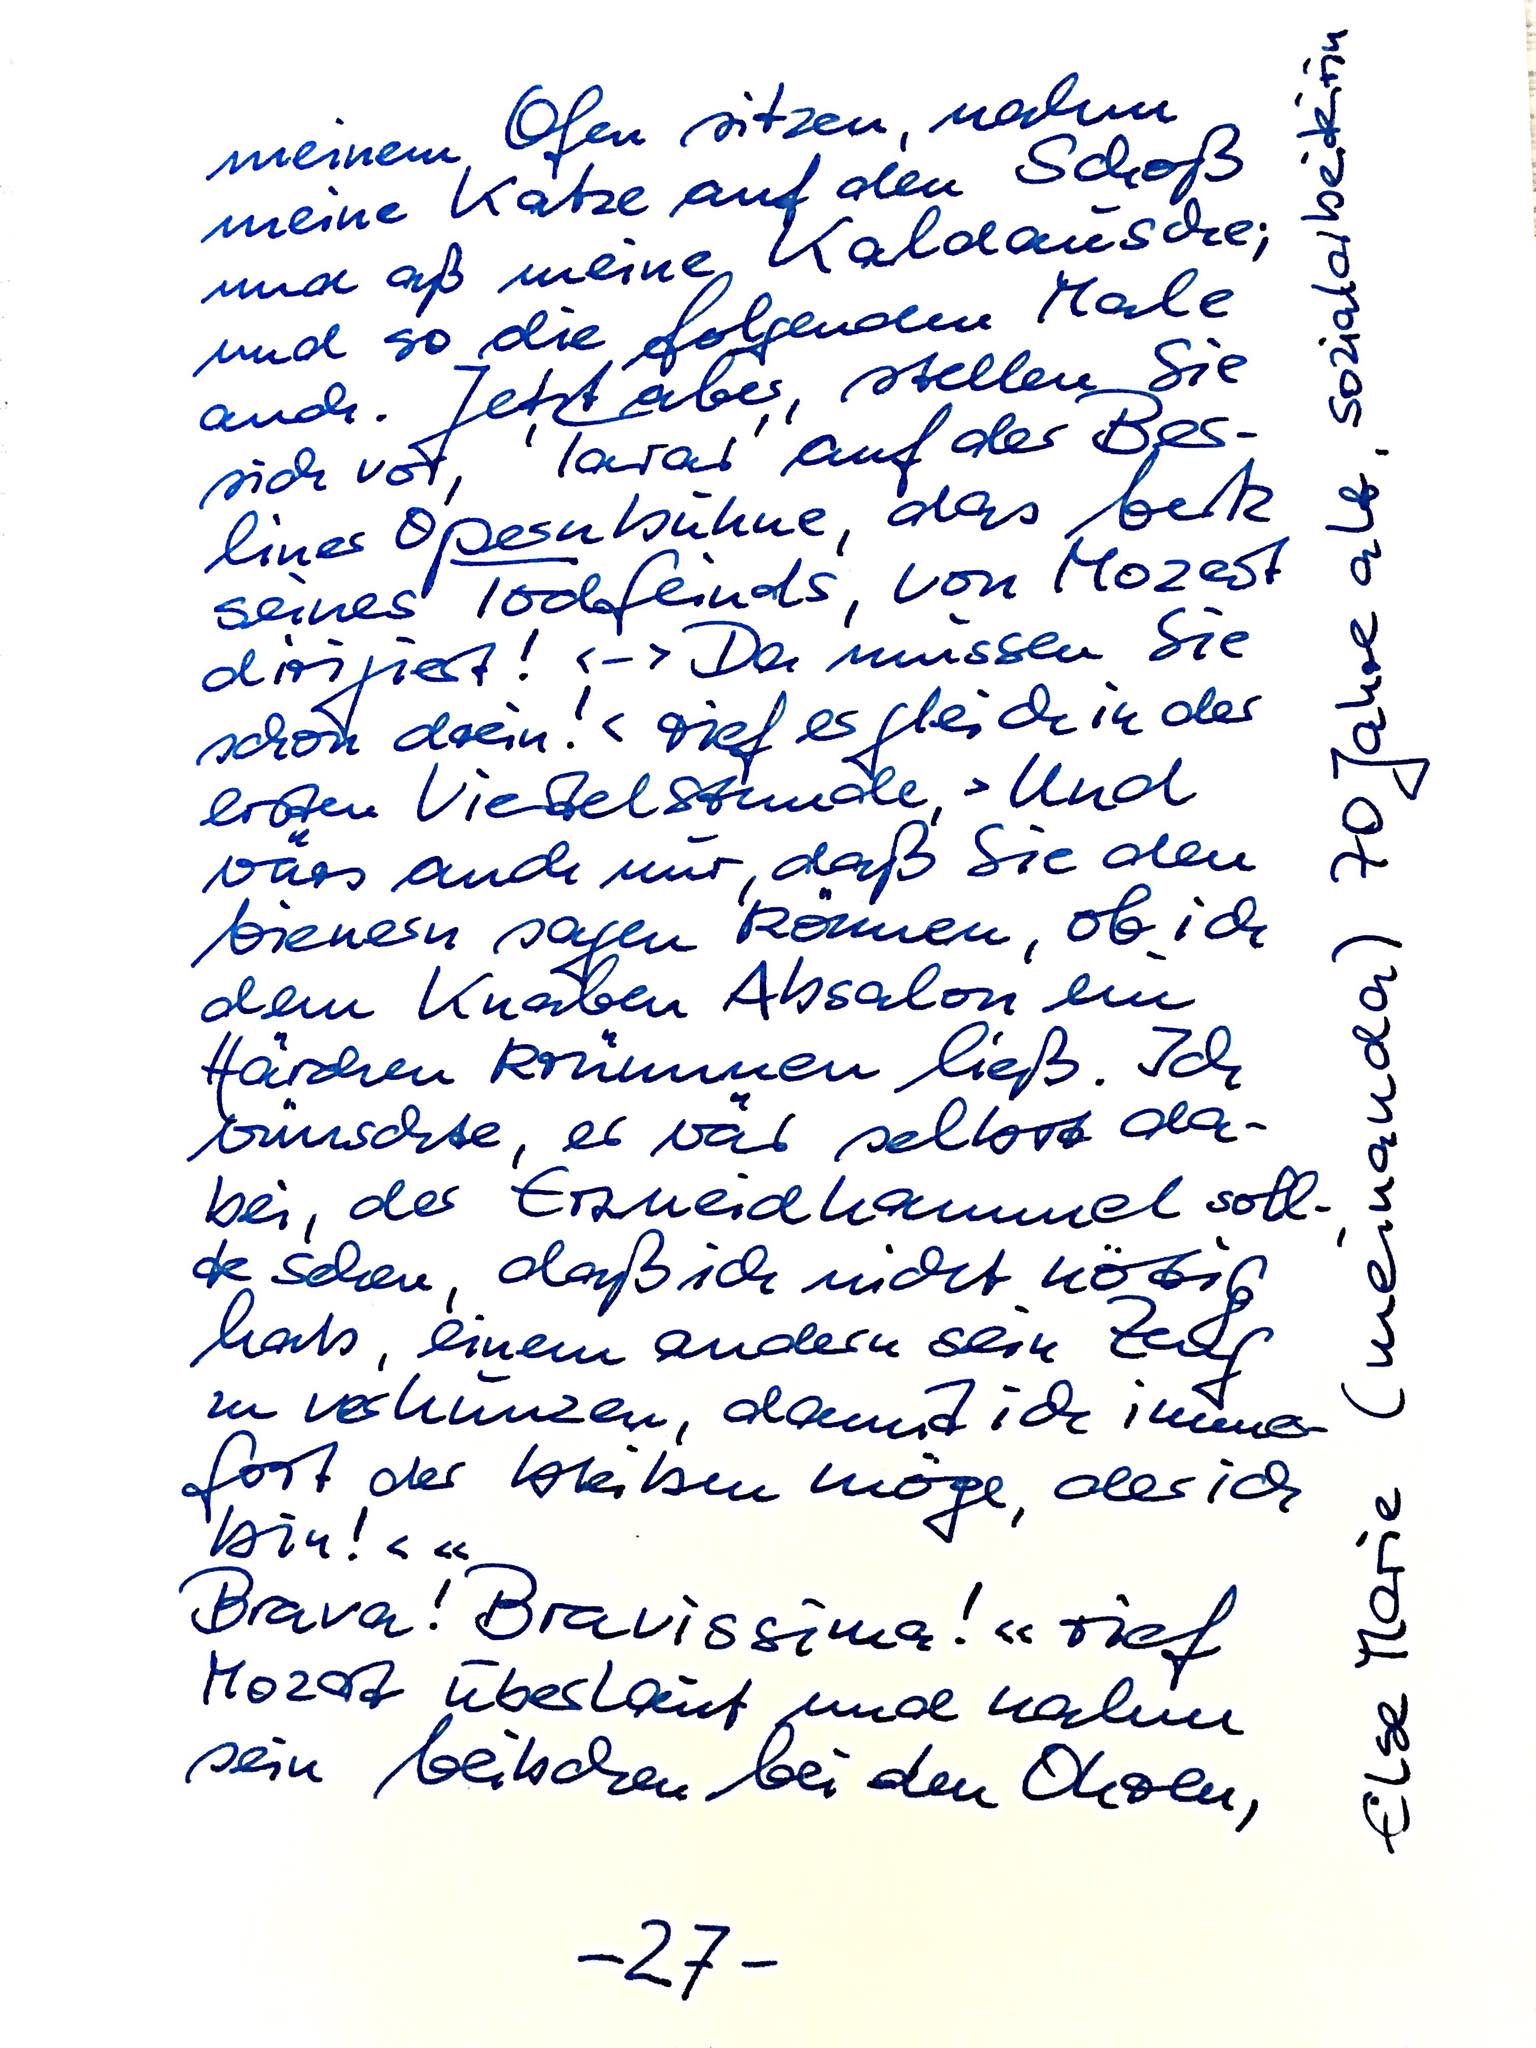 meinem Ofen sitzen, nahm
meine Katze auf den Schoß
und aß meine Kaldausche;
und so die folgenden Male
auch. Jetzt aber, stellen Sie
sich vor, 'Tarar' auf der Ber-
liner Opernbühne, das Werk
seines Todfeinds, von Mozart
dirigiert! ‹–› Da müssen Sie
schon drein!‹ rief er gleich in der
ersten Viertelstunde, › Und
wärs auch nur, daß Sie den
Wienern sagen können, ob ich
dem Knaben Absalon ein
Härchen krümmen ließ. Ich
wünschte, er wär selbst da-
bei, der Erzneidhammel soll-
te sehen, daß ich nicht nötig
hab, einem andern sein Zeug
zu verhunzen, damit ich immer-
fort der bleiben möge, der ich
bin!‹ «
Brava! Bravissima!« rief
Mozart überlaut und nahm
sein Weibchen bei den Ohren,
-27-
Else Marie (meinanda) 70 Jahre alt, sozialarbeiterin